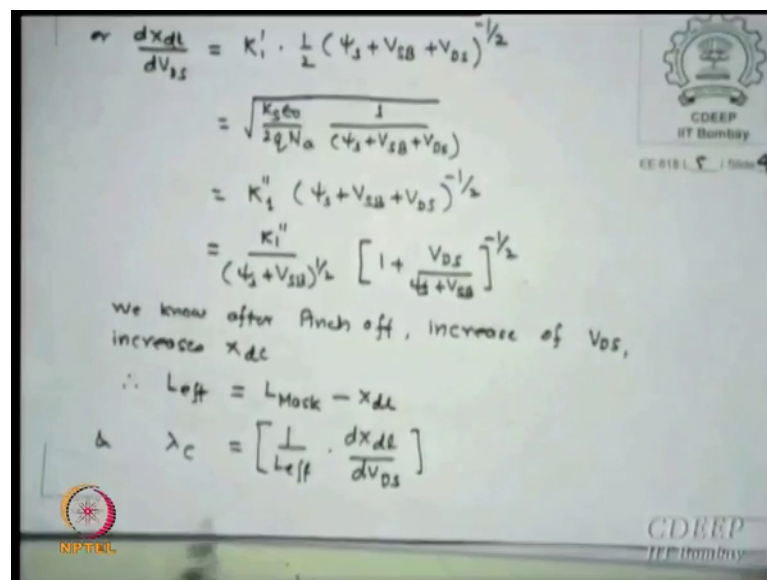 or dxdl/dVDS = K1' · 1/2 (ψs + VSB + VDS)^-1/2
= √(Ks ε0 / 2qNa · 1/(ψs + VSB + VDS))
= K1'' (ψs + VSB + VDS)^-1/2
= K1''/(ψs + VSB)^1/2 [1 + VDS/ψs + VSB]^-1/2
We know after Pinch off, increase of VDS,
increases xdl
∴ Leff = LMask − xdl
& λc = [1/Leff · dxdl/dVDS]
CDEEP
IIT Bombay
EE 618 L 5 / Slide 4
NPTEL
CDEEP
IIT Bombay